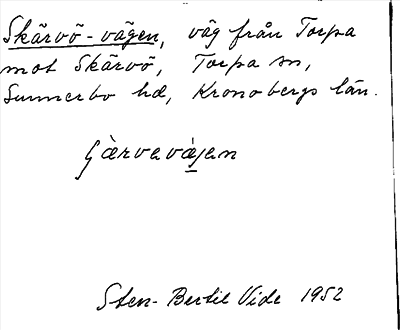 Skärvö-vägen, väg från Torpa
mot Skärvö, Torpa sn,
Sunnerbo hd, Kronobergs län.
Sten-Bertil Vide 1952